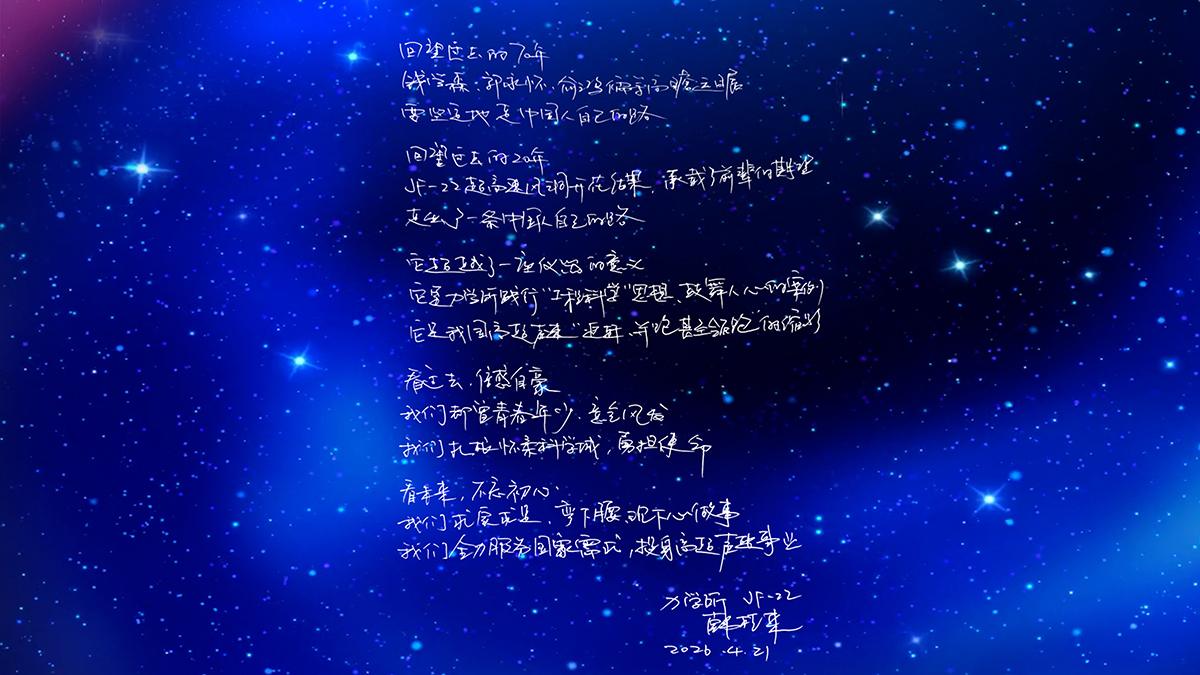 回望过去的70年
钱学森、郭永怀、俞鸿儒等高瞻远瞩
要坚定地走中国人自己的路
回望过去的20年
JF-22超高速风洞开花结果，承载了前辈们的期望
走出了一条中国人自己的路
它超越了一座仪器的意义
它是力学所践行“工程科学”思想、鼓舞人心的案例
它是我国高超声速“追赶、并跑甚至领跑”的缩影
看过去，倍感自豪
我们都曾青春年少、意气风发
我们扎根怀柔科学城，勇担使命
看未来，不忘初心
我们求实求是、弯下腰、沉下心做事
我们全力服务国家需求，投身高超声速事业
力学所 JF-22
韩桂来
2026.4.21